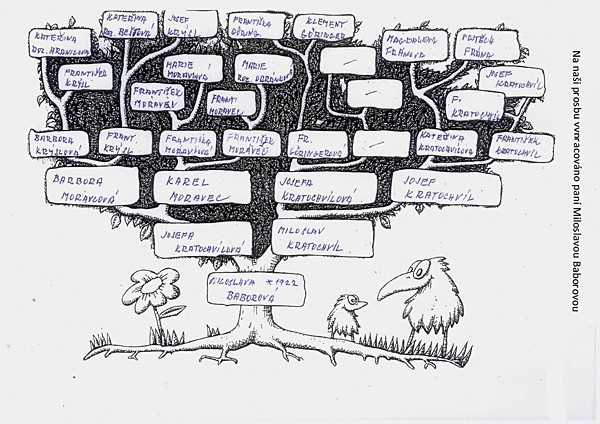 KATEŘINA
ROZ. HRANICOVÁ
KATEŘINA
JOSEF
KRÝSL
FRANTIŠKA
GÖRING.
KLEMENT
GÖRINGER
MAGDALENA
FRÁNOVÁ
VOJTĚCH
FRÁNA
FRANTIŠEK
KRÝSL
MARIE
MORAVCOVÁ
MARIE
JOSEF
KRATOCHVÍL
FRANTIŠEK
MORAVEC
FRANT.
MORAVEC
FR.
KRATOCHVÍL
BARBORA
KRYSLOVÁ
FRANT.
KRÝSL
FRANTIŠKA
MORAVCOVÁ
FRANTIŠEK
MORAVEC
FR.
GÖRINGEROVÁ
KATEŘINA
KRATOCHVÍLOVÁ
FRANTIŠEK
KRATOCHVÍL
BARBORA
MORAVCOVÁ
KAREL
MORAVEC
JOSEFA
KRATOCHVÍLOVÁ
JOSEF
KRATOCHVÍL
JOSEFA
KRATOCHVÍLOVÁ
MILOSLAV
KRATOCHVÍL
MILOSLAVA * 1922
BABOROVÁ
Na naši prosbu vypracováno paní Miloslavou Baborovou